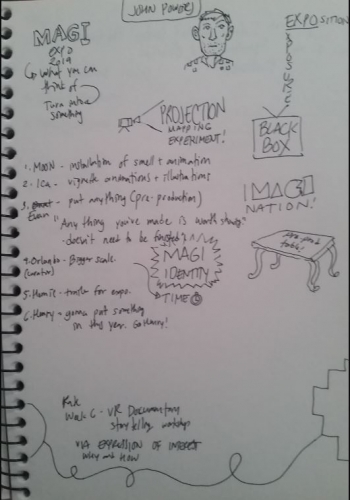 JOHN POWERS
MAGI
EXPO
2019
what you can
think of
Turn into
something
EXPOSITION
EXPOSURE
PROJECTION
MAPPING
EXPERIMENT!
BLACK
BOX
1. Moon - installation of smell + animation
2. Ica - vignette animations + illustrations
3. Euan - put anything (pre-production)
"Anything you've made is worth showing"
- doesn't need to be finished
IMAGI
NATION!
4. Orlando - Bigger scale.
(creator)
MAGI
IDENTITY
TIME
table!
5. Homie - trailer for expo.
6. Henry - gonna put something
in this year. Go Henry!
Week 6 - VR Documentary
story telling workshop
VIA EXPRESSION OF INTEREST
why and how